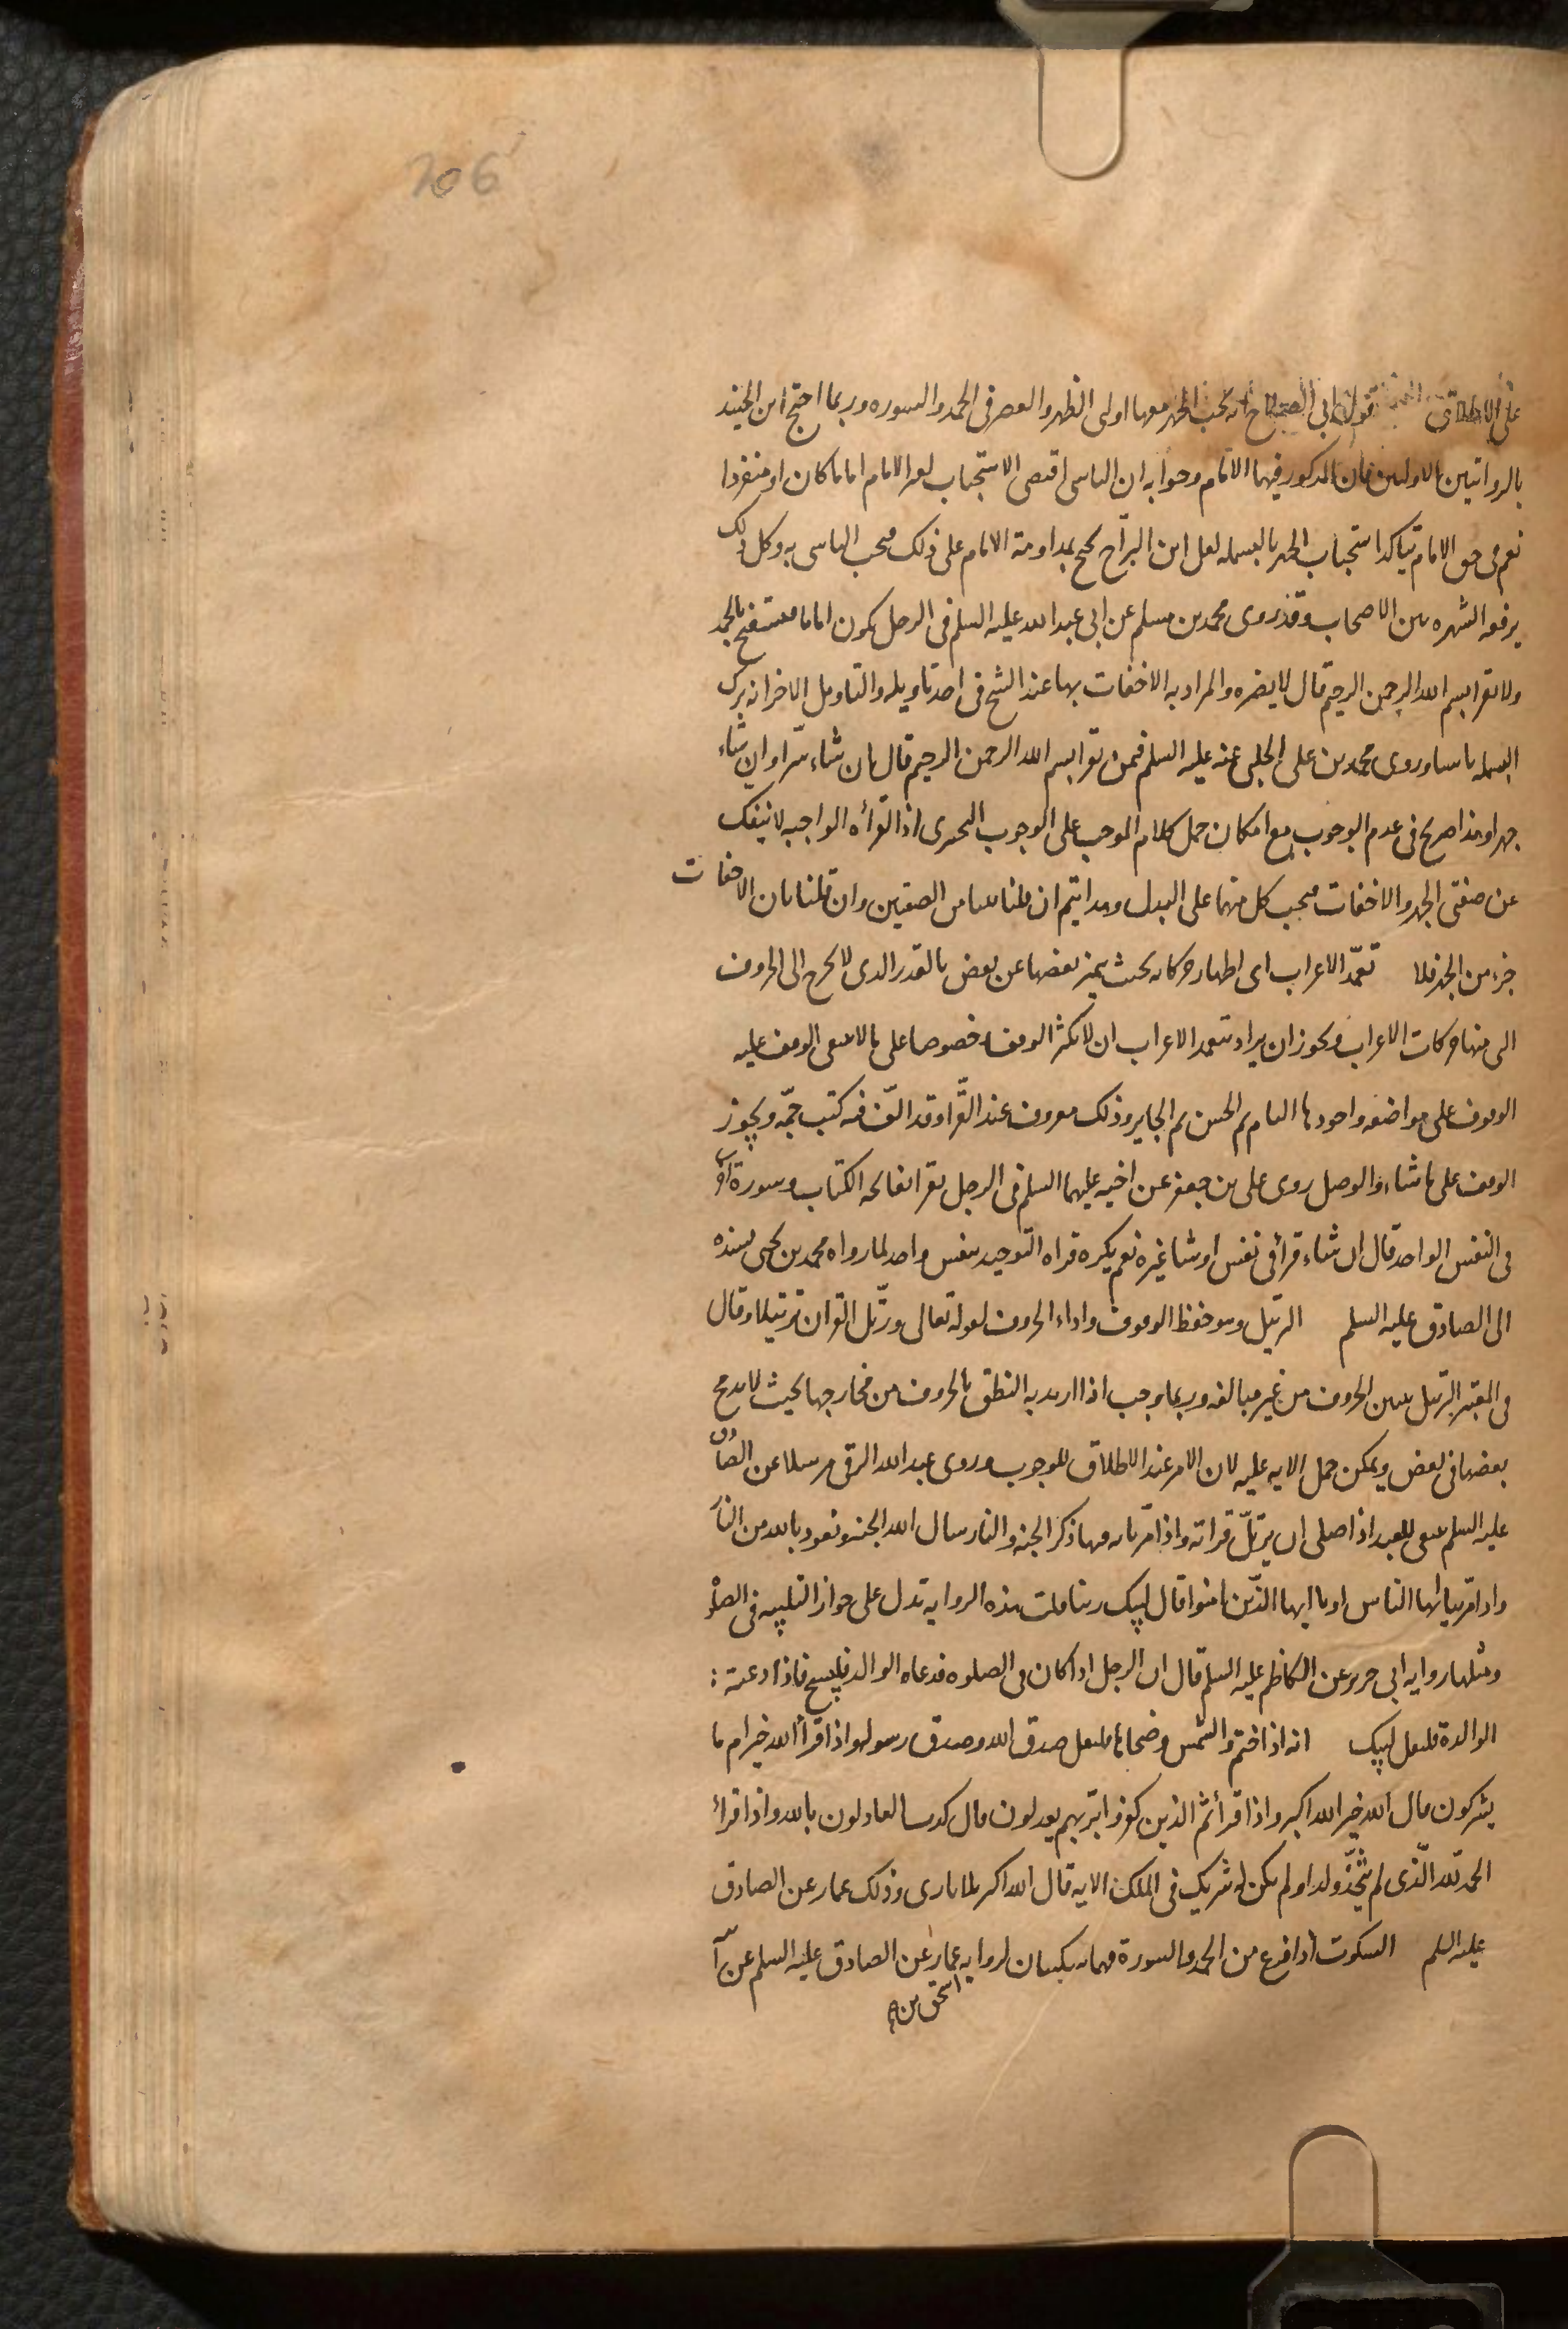 206
على الاطلاق قول ابي الصلاح انه يجب الجهر بها اولى الظهر والعصر فى الحمد والسوره وربما احتج ابن الجنيد
بالروايتين الاوليين فان المذكور فيهما الامام وجوابه ان التاسى اقتضى الاستحباب لغير الامام اماما كان او منفردا
نعم فى حق الامام يتاكد استحباب الجهر بالبسمله لعل ابن البراج يحتج بمداومة الامام على ذلك فيجب التاسى به وكل ذلك
يرفعه الشهره بين الاصحاب وقد روى محمد بن مسلم عن ابى عبد الله عليه السلم فى الرجل يكون اماما فيستفتح بالحمد
ولا يقرا بسم الله الرحمن الرحيم قال لا يضره والمراد به الاخفات بها عند الشيخ فى احد تاويليه والتاويل الاخر انه يترك
البسمله ناسيا وروى محمد بن على الحلبى عنه عليه السلم فيمن يقرا بسم الله الرحمن الرحيم قال ان شاء سرا وان شاء
جهرا وهذا صريح فى عدم الوجوب مع امكان حمل كلام الموجب على الوجوب التخييرى اذ القرأه الواجبه لا تنفك
عن صفتى الجهر والاخفات فيجب كل منهما على البدل وهذا يتم ان قلنا بتباين الصفتين وان قلنا بان الاخفات
جزء من الجهر فلا تعمّد الاعراب اى اظهار حركاته بحيث يتميز بعضها عن بعض بالقدر الذى لا يخرج الى الحروف
التى منها حركات الاعراب ويجوز ان يراد بتعمد الاعراب ان لا يكثر الوقف خصوصا على ما لا ينبغى الوقف عليه
الوقوف على مواضعه واجودها التام ثم الحسن ثم الجايز وذلك معروف عند القراء وقد الّف فيه كتب جمّه ويجوز
الوقف على ما شاء والوصل روى على بن جعفر عن اخيه عليهما السلم فى الرجل يقرا بفاتحه الكتاب وسورة اخرى
فى النفس الواحد قال ان شاء قرأ فى نفس او شا غيره نعم يكره قراه التوحيد بنفس واحد لما رواه محمد بن يحيى بسنده
الى الصادق عليه السلم الترتيل وهو حفظ الوقوف واداء الحروف لقوله تعالى ورتّل القران ترتيلا وقال
فى المعتبر الترتيل تبيين الحروف من غير مبالغه وربما وجب اذا اريد به النطق بالحروف من مخارجها بحيث لا يدمج
بعضها فى بعض ويمكن حمل الايه عليه لان الامر عند الاطلاق للوجوب وروى عبد الله البرقى مرسلا عن الصادق
عليه السلم ينبغى للعبد اذا صلى ان يرتل قراته واذا مر بايه فيها ذكر الجنه والنار سال الله الجنه وتعوذ بالله من النار
واذا مرّ بيا ايها الناس او يا ايها الذين امنوا قال لبيك ربنا قلت هذه الروايه تدل على جواز التلبيه فى الصلوة
ومثلها روايه ابى جرير عن الكاظم عليه السلم قال ان الرجل اذا كان فى الصلوه فدعاه الوالد فليسبح فاذا دعته :
الوالدة فليقل لبيك انه اذا ختم والشمس وضحاها فليقل صدق الله وصدق رسوله واذا قرأ الله خير ام ما
يشركون قال الله خير الله اكبر واذا قرأ ثم الذين كفروا بربهم يعدلون قال كذب العادلون بالله واذا قرأ
الحمد لله الّذى لم يتّخذ ولدا ولم يكن له شريك فى الملك الايه قال الله اكبر ثلاثا روى ذلك عمار عن الصادق
عليه السلم السكوت اذا فرغ من الحمد والسورة فهما سكتتان لروايه عمار عن الصادق عليه السلم عن
اسحق بن